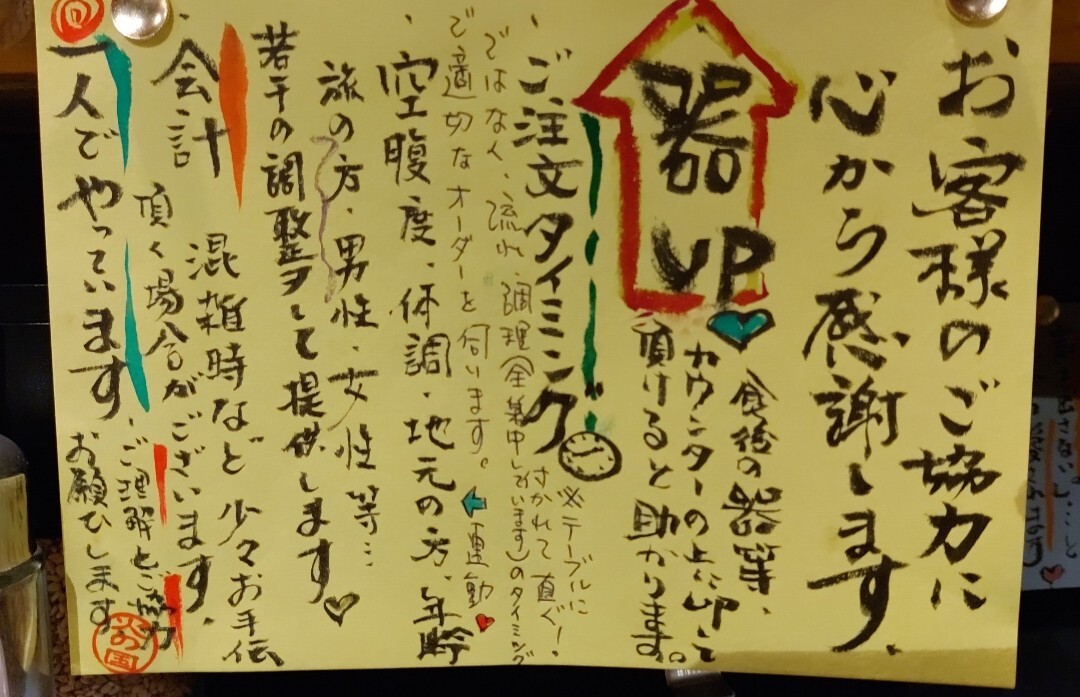 お客様のご協力に
心から感謝します。
器
UP
食後の器等、
カウンターの上に印して
頂けると助かります。
・ご注文タイミング
※テーブルに
付かれて直ぐ!
ではなく、流れ、調理(全集中しています)のタイミング
で適切なオーダーを伺います。
運動
・空腹度、体調、地元の方、年齢
旅の方・男性・女性等…
若干の調整をして提供します
・会計
混雑時など少々お手伝
頂く場合がございます。
一人でやっています
ご理解とご協力
お願ひします
火の国